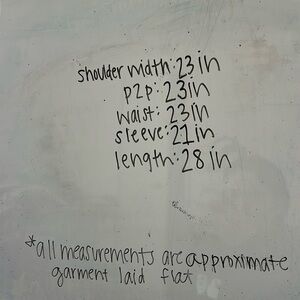 shoulder width: 23 in
p2p: 23in
waist: 23in
sleeve: 21in
length: 28 in
*all measurements are approximate
garment laid flat